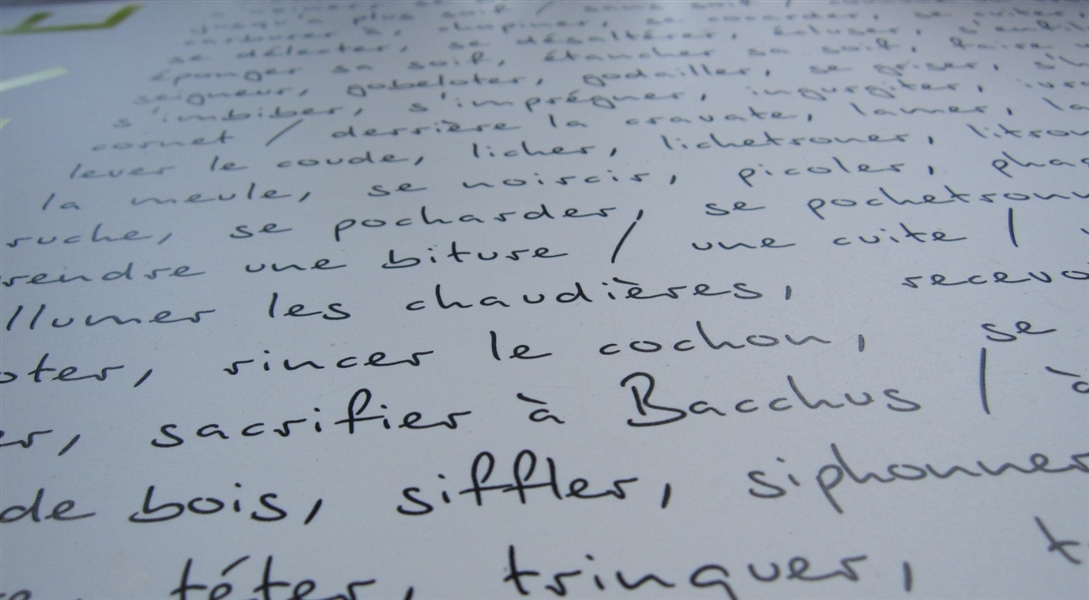 jusqu'à plus soif / sans soif /
chopiner, se cocarder, se cuiter
se délecter, se désaltérer, écluser,
éponger sa soif, étancher sa soif, faire
seigneur, gobeloter, godailler, se griser,
s'imbiber, s'imprégner, ingurgiter,
cornet / derrière la cravate, lamer,
lever le coude, licher, lichetroner,
la meule, se noircir, picoler,
ruche, se pocharder, se
rendre une biture / une cuite /
llumer les chaudières,
oter, rincer le cochon, se
er, sacrifier à Bacchus / à
de bois, siffler, siphonner
téter, trinquer, t